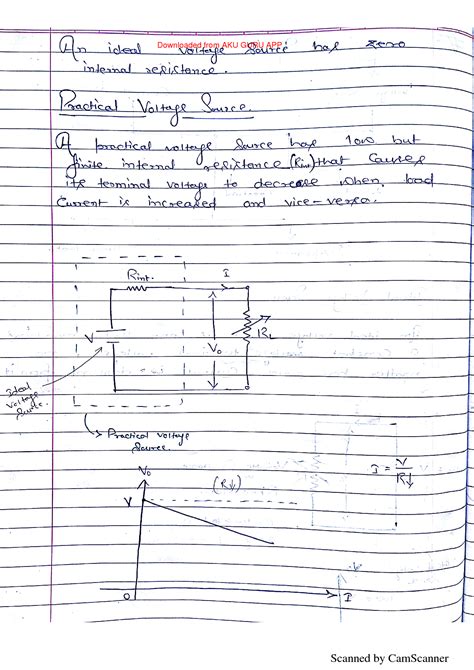 Downloaded from AKU GURU APP
An ideal voltage source has zero
internal resistance.
Practical Voltage Source.
A practical voltage source has low but
finite internal resistance (Rint) that causes
its terminal voltage to decrease when load
Current is increased and vice-versa.
Rint.
I
V
Vo
RL
Ideal
voltage
source.
Practical voltage
source.
I = V/R↓
Vo
(R↓)
V
O
I
Scanned by CamScanner